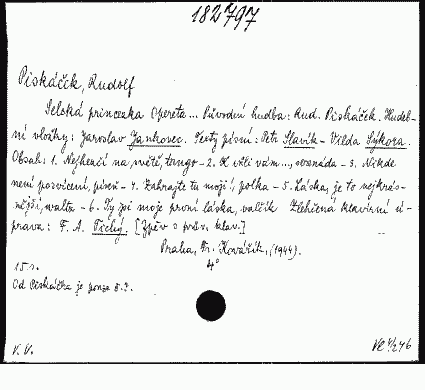 182797
Piskáček, Rudolf
Selská princezka Opereta... Původní hudba: Rud. Piskáček. Hudeb-
ní vložky: Jaroslav Jankovec. Texty písní: Petr Slavík - Vilda Sýkora.
Obsah: 1. Nejhezčí na světě, tango - 2. vám..., serenáda - 3. Nikde
není posvícení, píseň - 4. Zahrajte tu moji!, polka - 5. Láska, je to nejkrás-
nější, waltz - 6. Ty jsi moje první láska, valčík Zlehčená klavírní ú-
prava: F. A. Tichý. [Zpěv s prův. klav.]
Praha, Fr. Kovářík, (1944).
4°
15 s.
Od Piskáčka je pouze
V. V.